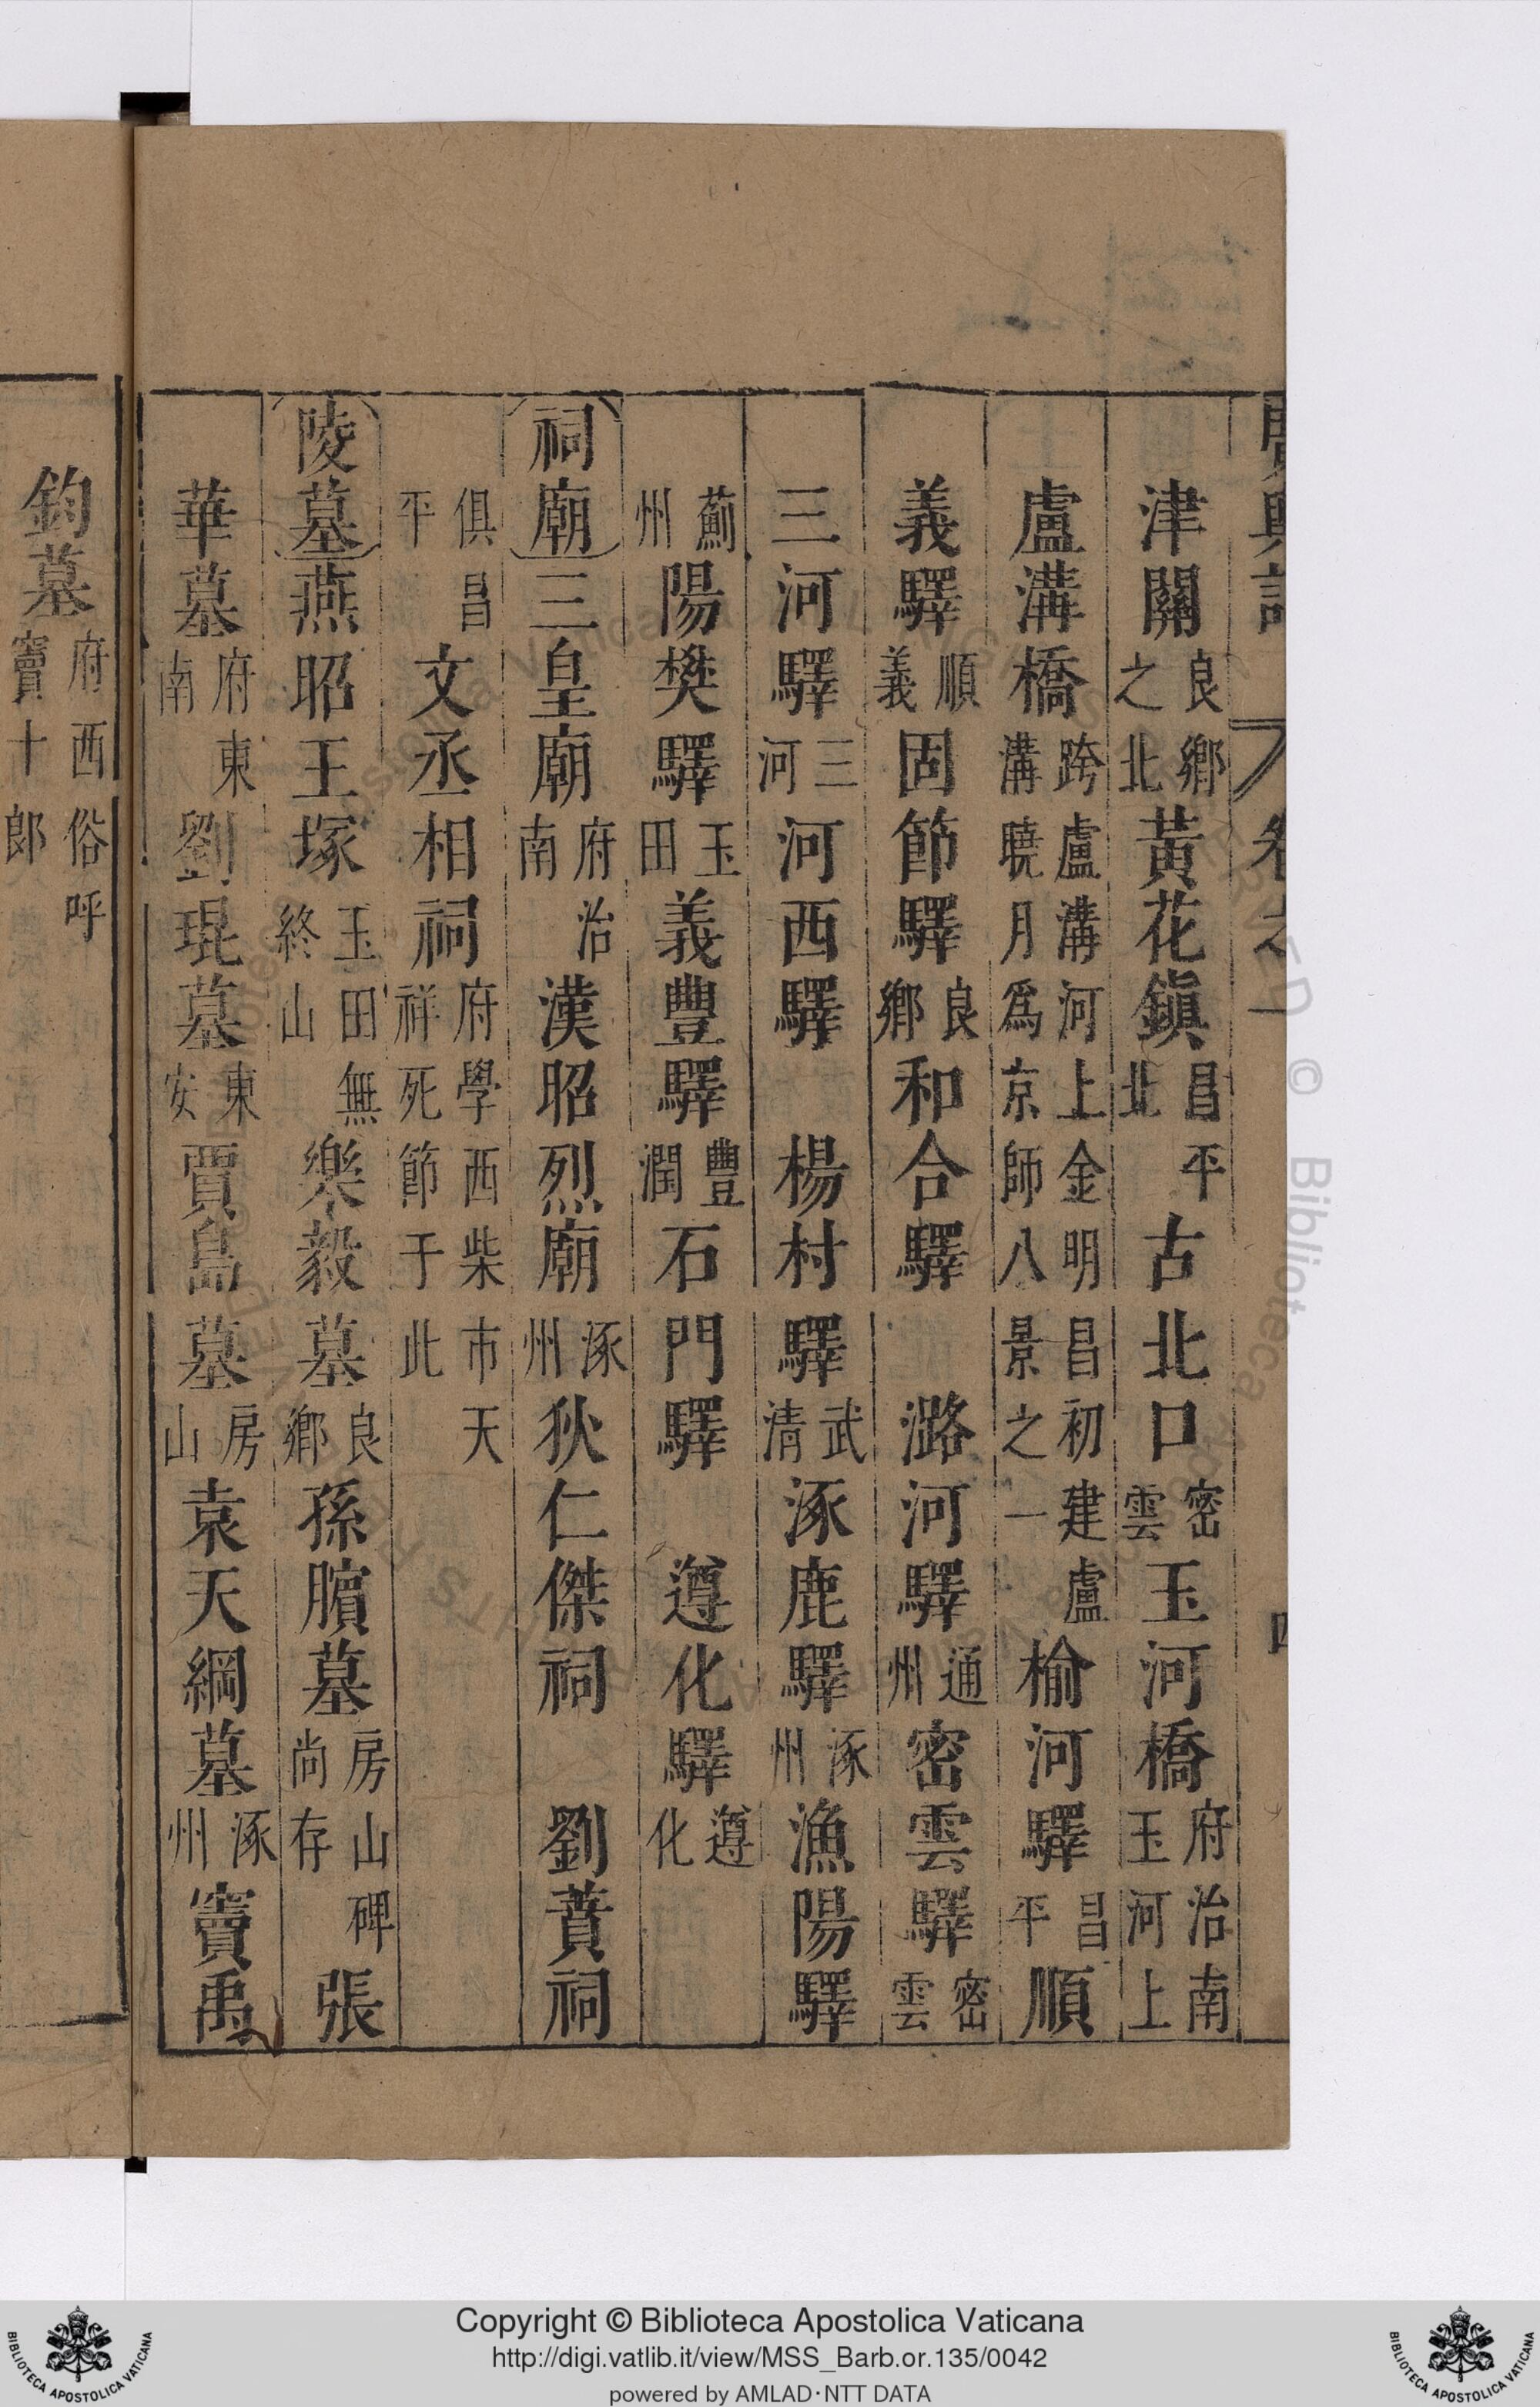 廣輿記 卷之一 四
津關良鄉之北黃花鎮昌平北古北口密雲玉河橋府治南玉河上
盧溝橋跨盧溝河上金明昌初建盧溝曉月為京師八景之一榆河驛昌平順
義驛順義固節驛良鄉和合驛 潞河驛通州密雲驛密雲
三河驛三河河西驛 楊村驛武清涿鹿驛涿州漁陽驛
薊州陽樊驛玉田義豐驛豐潤石門驛 遵化驛遵化
祠廟三皇廟府治南漢昭烈廟涿州狄仁傑祠 劉蕡祠
俱昌平文丞相祠府學西柴市天祥死節于此
陵墓燕昭王塚玉田無終山樂毅墓良鄉孫臏墓房山碑尚存張
華墓府東南劉琨墓東安賈島墓房山袁天綱墓涿州竇禹
鈞墓府西俗呼竇十郎
Copyright © Biblioteca Apostolica Vaticana
http://digi.vatlib.it/view/MSS_Barb.or.135/0042
powered by AMLAD·NTT DATA
BIBLIOTECA APOSTOLICA VATICANA
BIBLIOTECA APOSTOLICA VATICANA